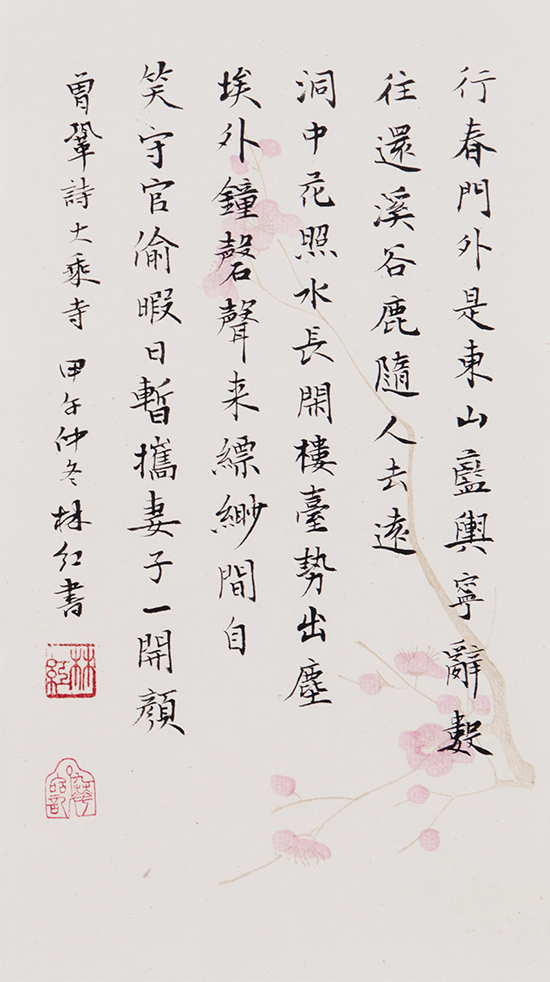 行春門外是東山藍輿寧辭數
往還溪谷鹿隨人去遠
洞中花照水長閑樓臺勢出塵
埃外鐘磬聲来縹緲間自
笑守官偷暇日暫攜妻子一開顏
曾鞏詩大乘寺 甲午仲冬林红書
林紅